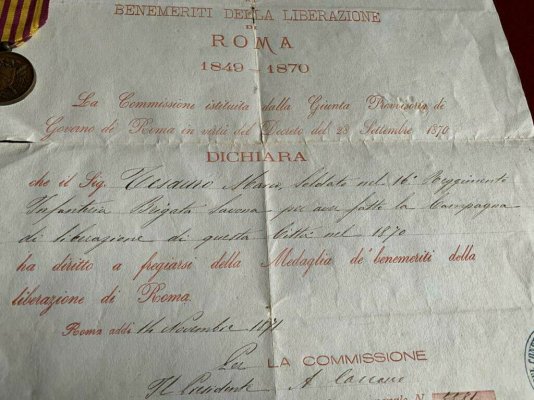 BENEMERITI DELLA LIBERAZIONE
DI
ROMA
1849 - 1870
La Commissione istituita dalla Giunta Provvisoria di
Governo di Roma in virtù del Decreto del 28 Settembre 1870
DICHIARA
che il Sig. Tesauro Marco Soldato nel 16º Reggimento
Infanteria Brigata Savona per aver fatto la Campagna
di liberazione di questa Città nel 1870
ha diritto a fregiarsi della Medaglia de' benemeriti della
liberazione di Roma.
Roma addì 14 Novembre 1871
Per LA COMMISSIONE
Il Presidente A.